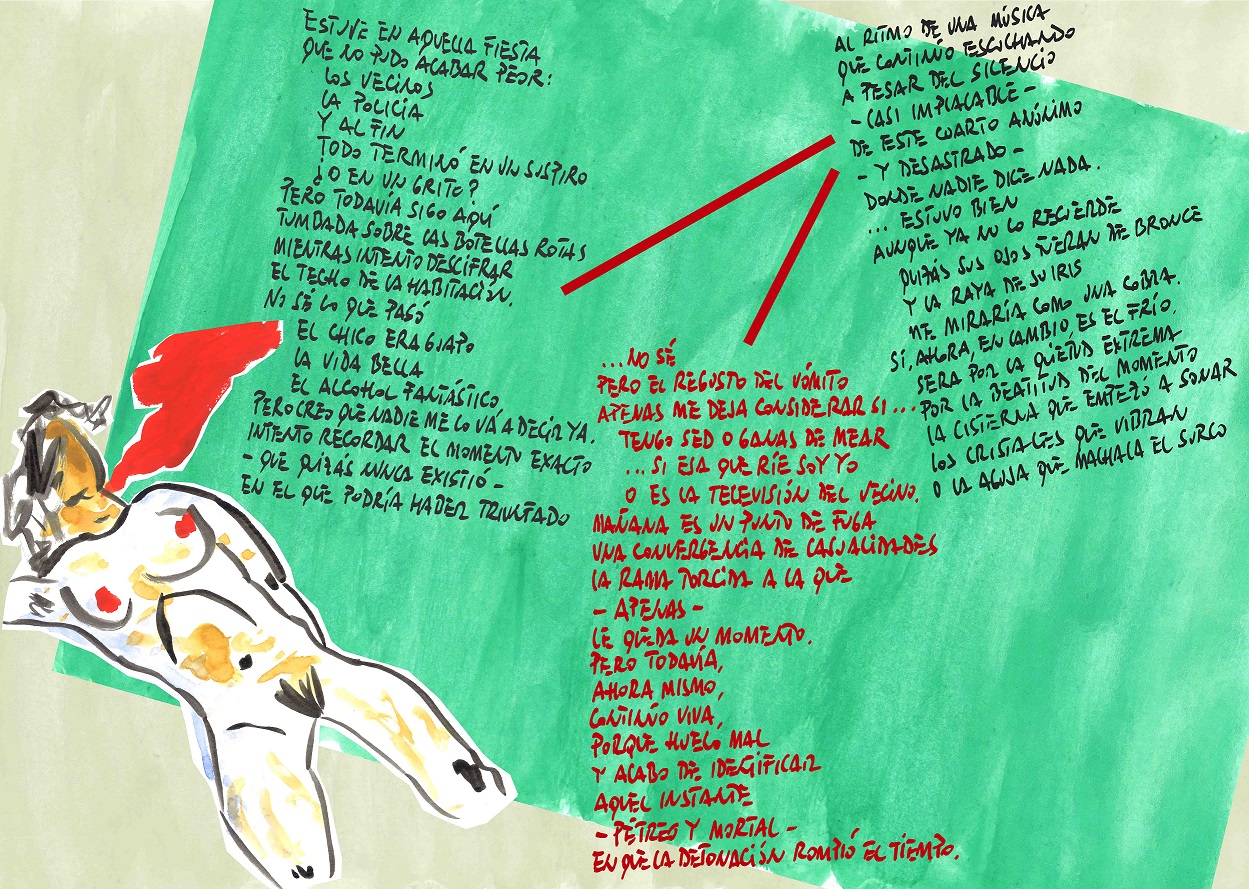 ESTUVE EN AQUELLA FIESTA
QUE NO PUDO ACABAR PEOR:
LOS VECINOS
LA POLICÍA
Y AL FIN
TODO TERMINÓ EN UN SUSPIRO
¿O EN UN GRITO?
PERO TODAVÍA SIGO AQUÍ
TUMBADA SOBRE LAS BOTELLAS ROTAS
MIENTRAS INTENTO DESCIFRAR
EL TECHO DE LA HABITACIÓN.
NO SÉ LO QUE PASÓ
EL CHICO ERA GUAPO
LA VIDA BELLA
EL ALCOHOL FANTÁSTICO
PERO CREO QUE NADIE ME LO VÁ A DECIR YA.
INTENTO RECORDAR EL MOMENTO EXACTO
- QUE QUIZÁS NUNCA EXISTIÓ -
EN EL QUE PODRÍA HABER TRIUNFADO
AL RITMO DE UNA MÚSICA
QUE CONTINÚO ESCUCHANDO
A PESAR DEL SILENCIO
- CASI IMPLACABLE -
DE ESTE CUARTO ANÓNIMO
- Y DESASTRADO -
DONDE NADIE DICE NADA.
... ESTUVO BIEN
AUNQUE YA NO LO RECUERDE
QUIZÁS SUS OJOS FUERAN DE BRONCE
Y LA RAYA DE SU IRIS
ME MIRARÍA COMO UNA COBRA.
SÍ, AHORA, EN CAMBIO, ES EL FRÍO.
SERA POR LA QUIETUD EXTREMA
POR LA BEATITUD DEL MOMENTO
LA CISTERNA QUE EMPEZÓ A SONAR
LOS CRISTALES QUE VIBRAN
O LA AGUJA QUE MACHACA EL SURCO
...NO SÉ
PERO EL REGUSTO DEL VÓMITO
APENAS ME DEJA CONSIDERAR SI ...
TENGO SED O GANAS DE MEAR
... SI ESA QUE RÍE SOY YO
O ES LA TELEVISIÓN DEL VECINO.
MAÑANA ES UN PUNTO DE FUGA
UNA CONVERGENCIA DE CASUALIDADES
LA RAMA TORCIDA A LA QUE
- APENAS -
LE QUEDA UN MOMENTO.
PERO TODAVÍA,
AHORA MISMO,
CONTINÚO VIVA,
PORQUE HUELO MAL
Y ACABO DE IDENTIFICAR
AQUEL INSTANTE
- PÉTREO Y MORTAL -
EN QUE LA DETONACIÓN ROMPIÓ EL TIEMPO.